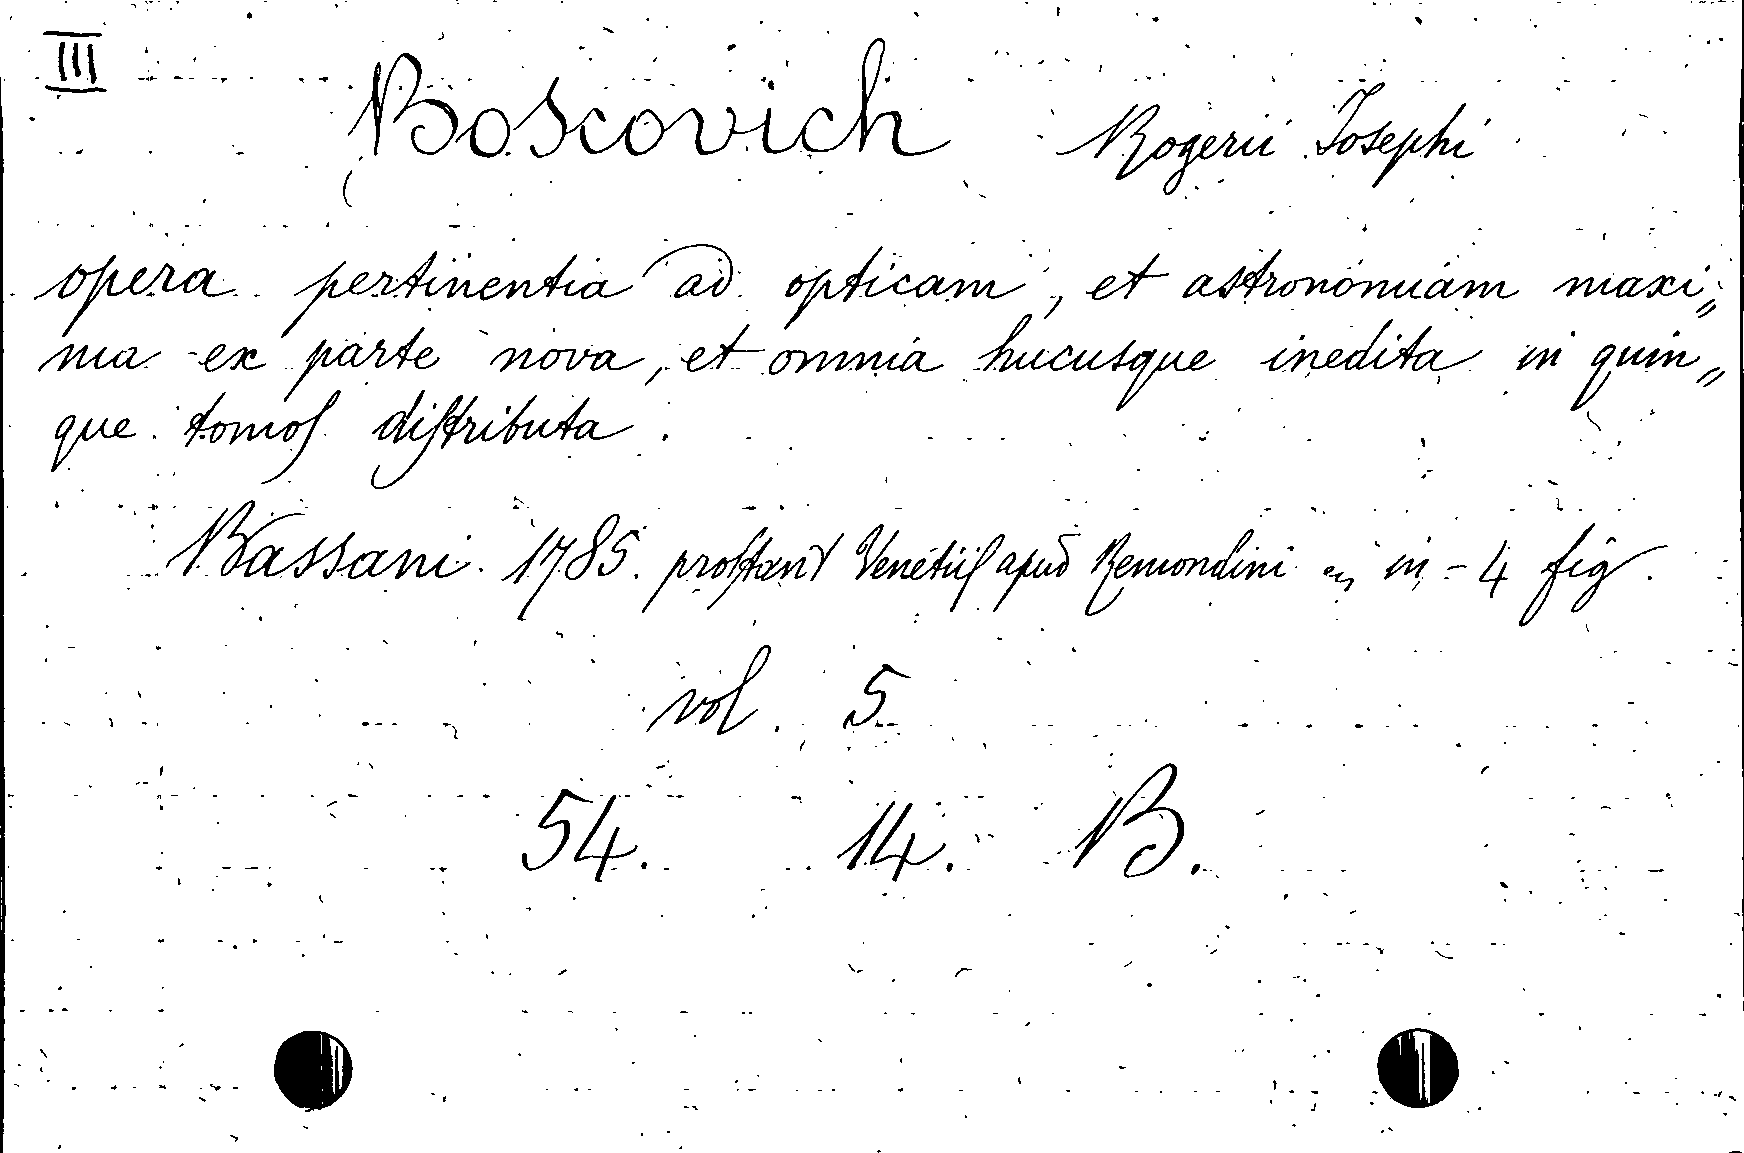 III
Boscovich Rogerii Iosephi
opera pertinentia ad opticam, et astronomiam maxi„
ma ex parte nova, et omnia hucusque inedita in quin„
que tomos distributa.
Bassani. 1785. prostant Venetiis apud Remondini in-4 fig.
vol. 5
54. 14. B.